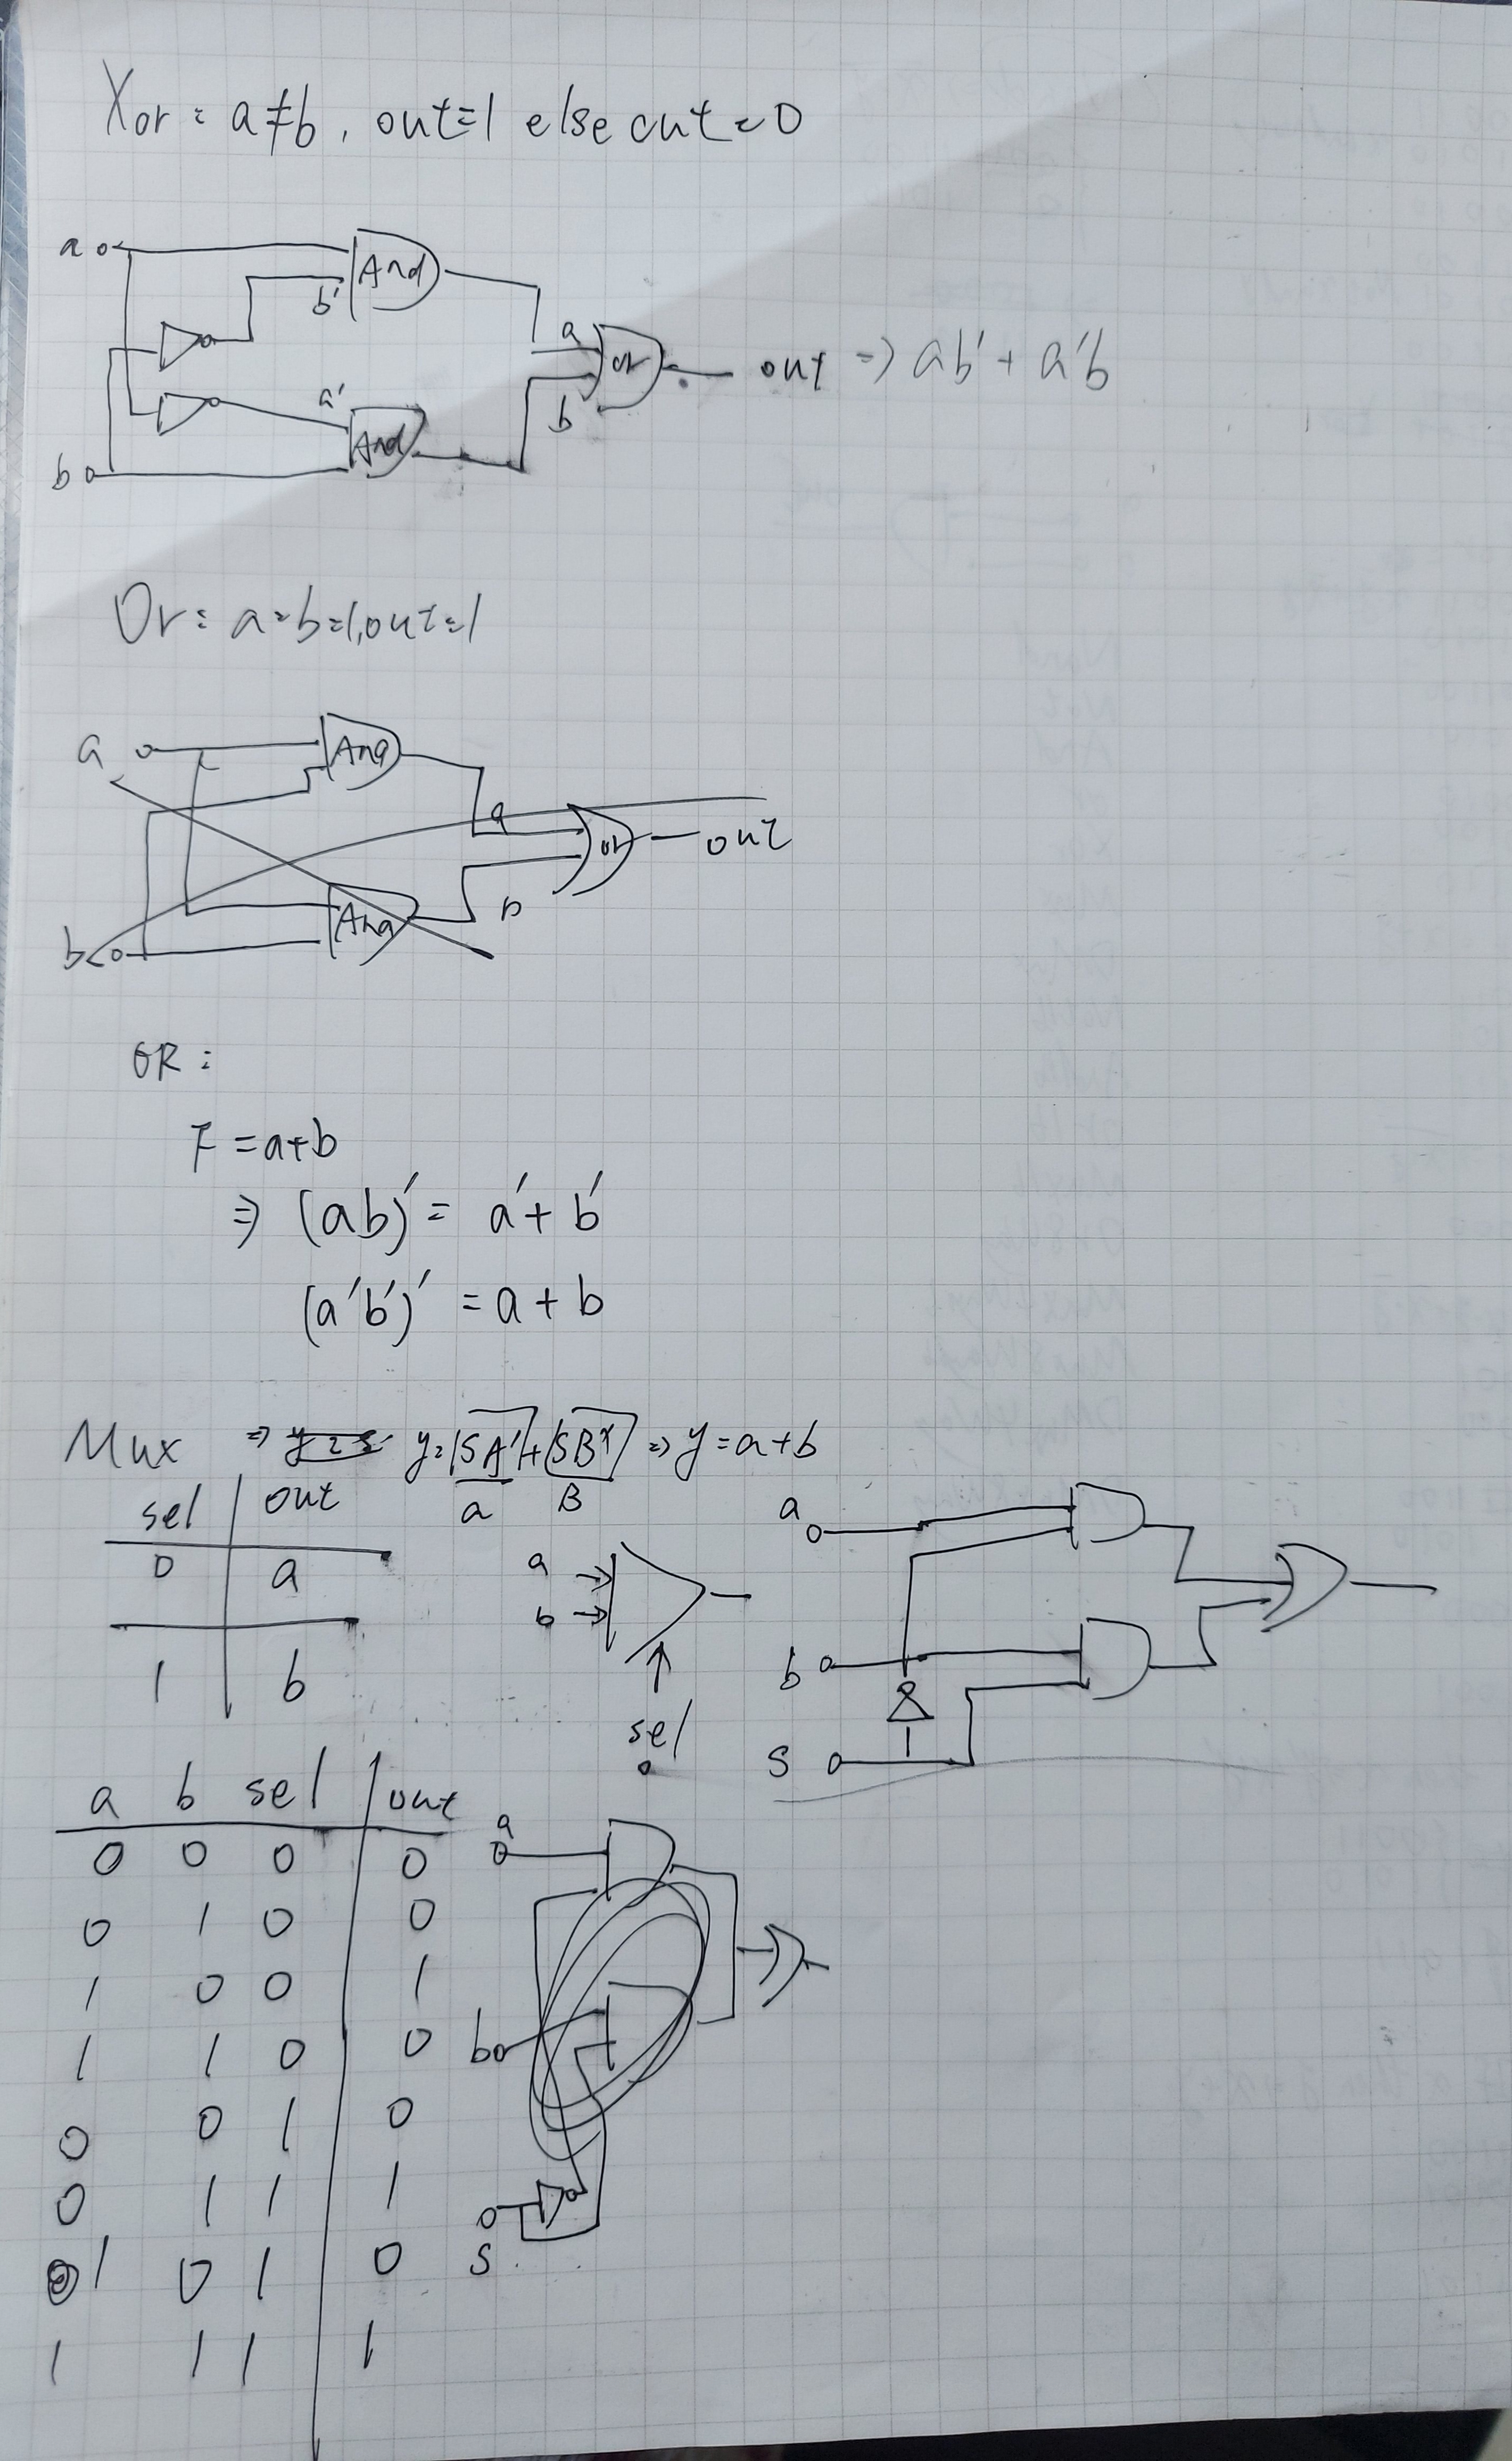 Xor: a≠b, out=1 else out=0
a
And
b'
a
or
out ⇒ ab' + a'b
a'
b
And
b
Or: a=b=1, out=1
a
And
a
or
out
And
b
b
OR:
F = a+b
⇒ (ab)' = a' + b'
(a'b')' = a + b
Mux ⇒ y=(SA')+(SB') ⇒ y=a+b
a B
sel | out
0 | a
1 | b
a
b
sel
a
b
S
a b sel | out
0 0 0 | 0
0 1 0 | 0
1 0 0 | 1
1 1 0 | 0
0 0 1 | 0
0 1 1 | 1
1 0 1 | 0
1 1 1 | 1
a
b
S